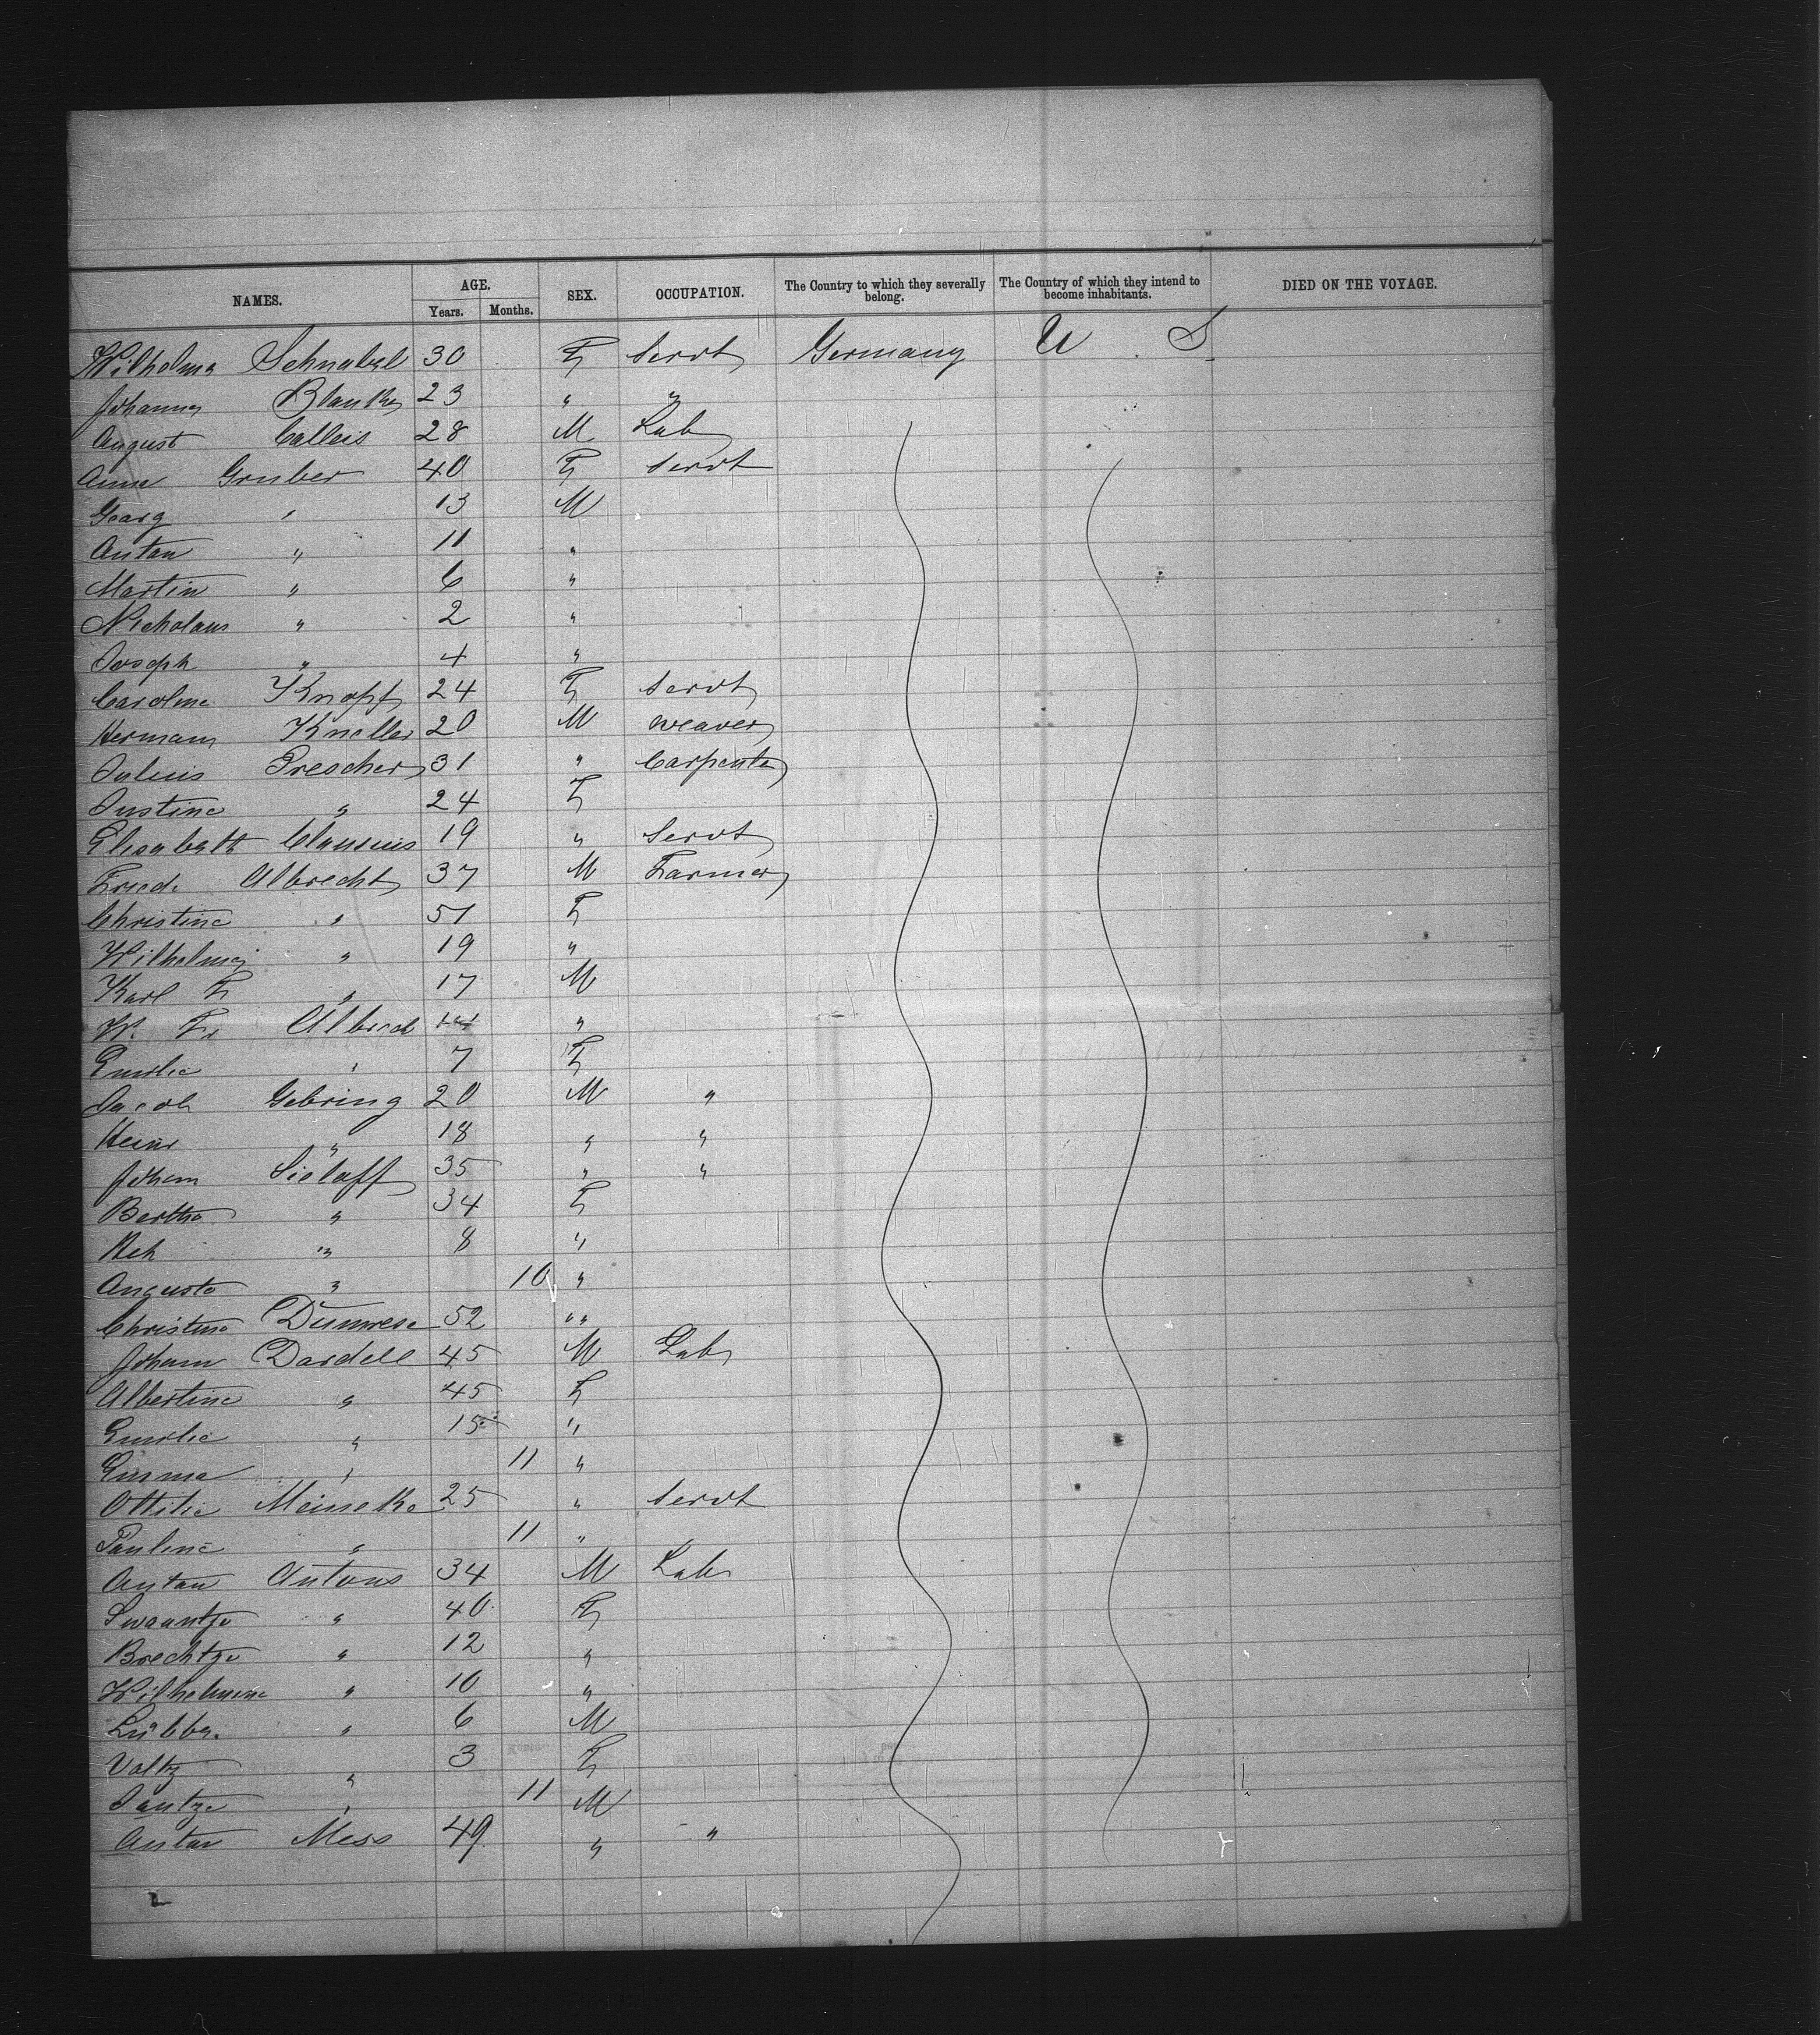 NAMES. AGE. SEX. OCCUPATION. The Country to which they severally belong. The Country of which they intend to become inhabitants. DIED ON THE VOYAGE.
Years. Months.
Wilhelma Schnabel 30 F Servt Germany U S
Johanna Blanke 23 " "
August Calleis 28 M Lab
Anna Gruber 40 F Servt
Georg " 13 M
Anton " 11 "
Martin " 6 "
Nicholaus " 2 "
Joseph " 4 "
Caroline Knopf 24 F Servt
Hermann Knoller 20 M weaver
Julius Prescher 31 " Carpenter
Justine " 24 F
Elisabeth Clausius 19 " Servt
Friedr Albrecht 37 M Farmer
Christine " 51 F
Wilhelmina " 19 "
Karl F " 17 M
W. Fr Albrecht 14 "
Emilie " 7 F
Jacob Gebring 20 M "
Heinr " 18 " "
Johann Sielaff 35 " "
Bertha " 34 F
" 8 "
Augusta " 10 "
Christine Dumrese 52 "
Johann Dardell 45 M Lab
Albertine " 45 F
Emilie " 15 "
Emma " 11 "
Ottilie Meineke 25 " Servt
Pauline " 11 "
Anton Antons 34 M Lab
Swaantje " 40 F
Brechtze " 12 "
Wilhelmine " 10 "
Lübbe " 6 M
" 3 F
Jantze " 11 M
Anton Mess 49 " "